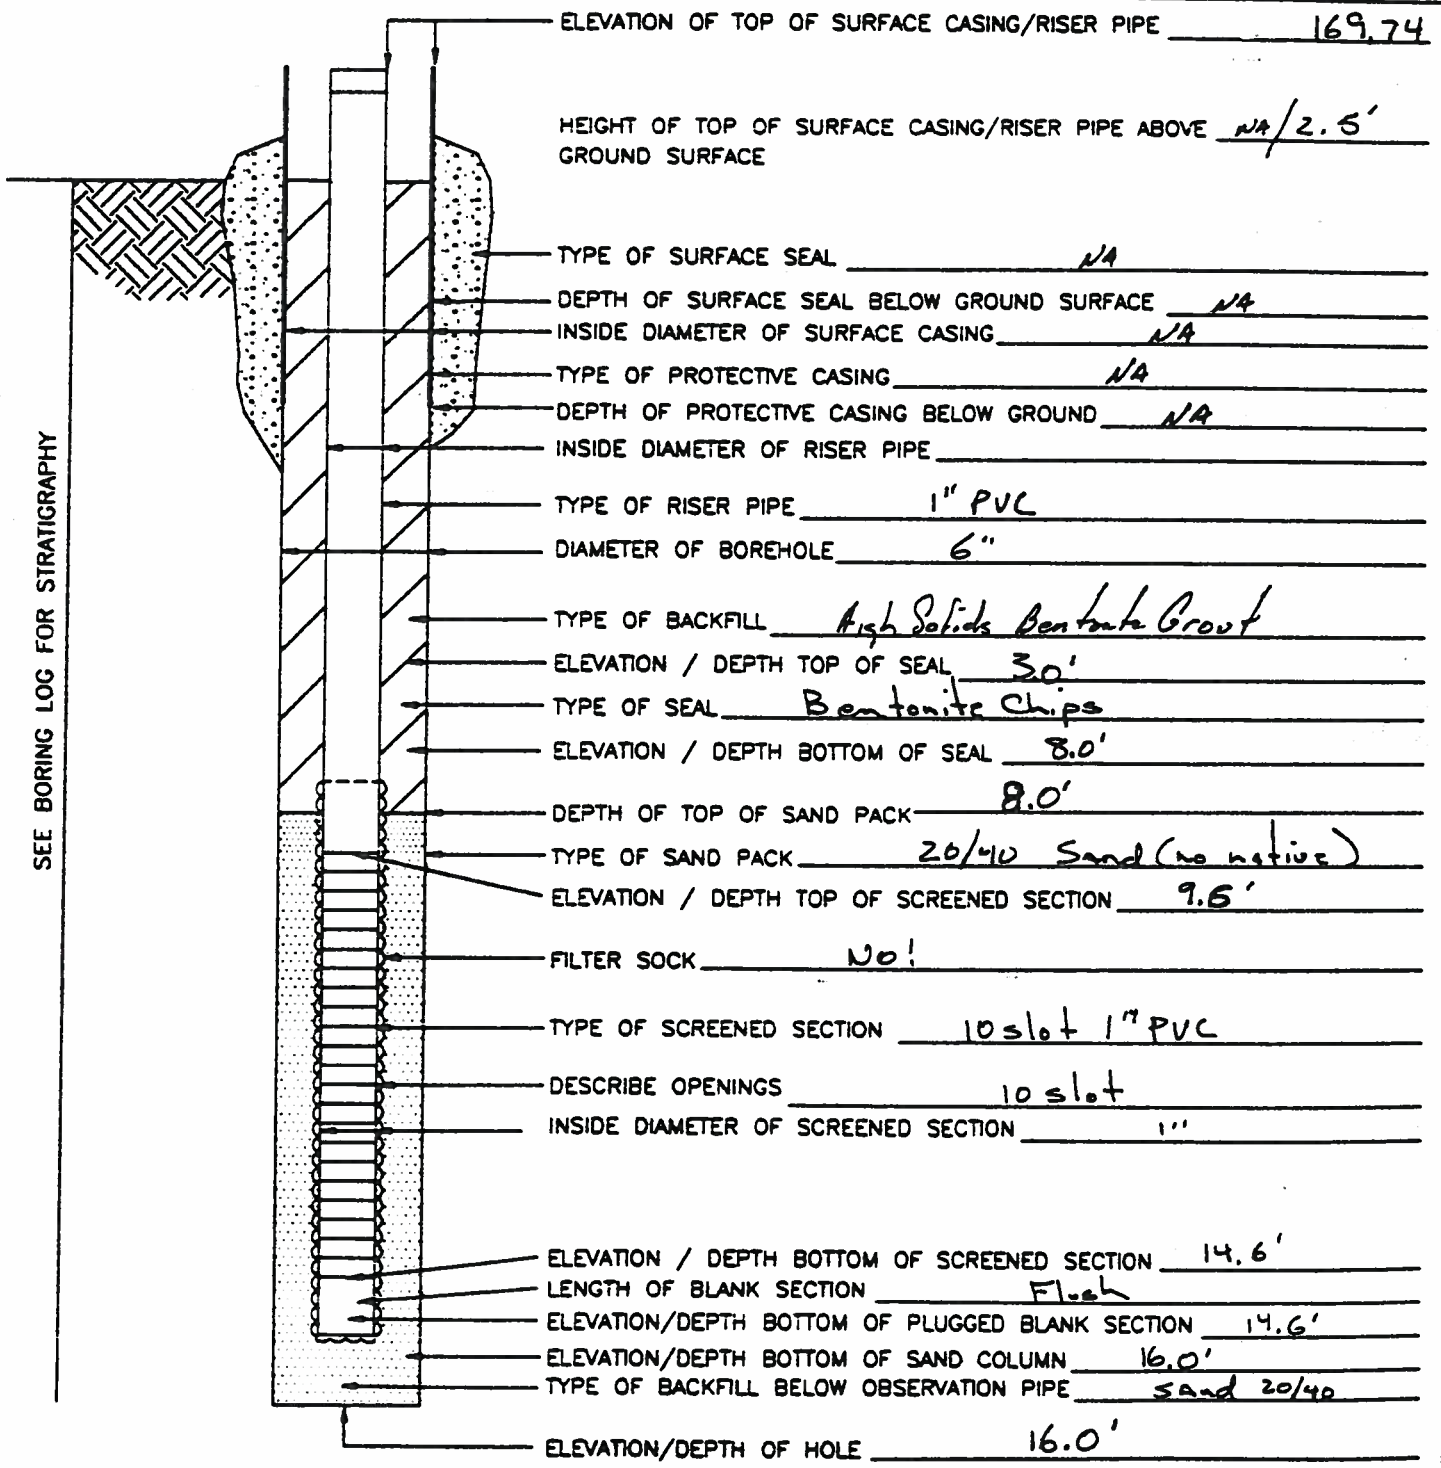 ELEVATION OF TOP OF SURFACE CASING/RISER PIPE 169.74
HEIGHT OF TOP OF SURFACE CASING/RISER PIPE ABOVE NA/2.5'
GROUND SURFACE
TYPE OF SURFACE SEAL NA
DEPTH OF SURFACE SEAL BELOW GROUND SURFACE NA
INSIDE DIAMETER OF SURFACE CASING NA
TYPE OF PROTECTIVE CASING NA
DEPTH OF PROTECTIVE CASING BELOW GROUND NA
INSIDE DIAMETER OF RISER PIPE
TYPE OF RISER PIPE 1" PVC
DIAMETER OF BOREHOLE 6"
TYPE OF BACKFILL High Solids Bentonite Grout
ELEVATION / DEPTH TOP OF SEAL 3.0'
TYPE OF SEAL Bentonite Chips
ELEVATION / DEPTH BOTTOM OF SEAL 8.0'
DEPTH OF TOP OF SAND PACK 8.0'
TYPE OF SAND PACK 20/40 Sand (no native)
ELEVATION / DEPTH TOP OF SCREENED SECTION 9.6'
FILTER SOCK No!
TYPE OF SCREENED SECTION 10 slot 1" PVC
DESCRIBE OPENINGS 10 slot
INSIDE DIAMETER OF SCREENED SECTION 1"
ELEVATION / DEPTH BOTTOM OF SCREENED SECTION 14.6'
LENGTH OF BLANK SECTION Flush
ELEVATION/DEPTH BOTTOM OF PLUGGED BLANK SECTION 14.6'
ELEVATION/DEPTH BOTTOM OF SAND COLUMN 16.0'
TYPE OF BACKFILL BELOW OBSERVATION PIPE sand 20/40
ELEVATION/DEPTH OF HOLE 16.0'
SEE BORING LOG FOR STRATIGRAPHY